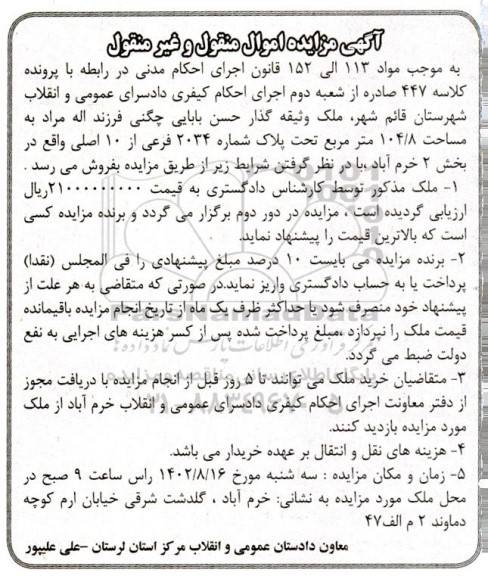 آگهی مزایده اموال منقول و غیر منقول
به موجب مواد ۱۱۳ الی ۱۵۲ قانون اجرای احکام مدنی در رابطه با پرونده
کلاسه ۴۴۷ صادره از شعبه دوم اجرای احکام کیفری دادسرای عمومی و انقلاب
شهرستان قائم شهر، ملک وثیقه گذار حسن بابایی چگنی فرزند اله مراد به
مساحت ۱۰۴/۸ متر مربع تحت پلاک شماره ۲۰۳۴ فرعی از ۱۰ اصلی واقع در
بخش ۲ خرم آباد ،با در نظر گرفتن شرایط زیر از طریق مزایده بفروش می رسد .
۱- ملک مذکور توسط کارشناس دادگستری به قیمت ۲۱۰۰۰۰۰۰۰۰۰ریال
ارزیابی گردیده است ، مزایده در دور دوم برگزار می گردد و برنده مزایده کسی
است که بالاترین قیمت را پیشنهاد نماید.
۲- برنده مزایده می بایست ۱۰ درصد مبلغ پیشنهادی را فی المجلس (نقدا)
پرداخت یا به حساب دادگستری واریز نماید.در صورتی که متقاضی به هر علت از
پیشنهاد خود منصرف شود یا حداکثر ظرف یک ماه از تاریخ انجام مزایده باقیمانده
قیمت ملک را نپردازد ،مبلغ پرداخت شده پس از کسر هزینه های اجرایی به نفع
دولت ضبط می گردد.
۳- متقاضیان خرید ملک می توانند تا ۵ روز قبل از انجام مزایده با دریافت مجوز
از دفتر معاونت اجرای احکام کیفری دادسرای عمومی و انقلاب خرم آباد از ملک
مورد مزایده بازدید کنند.
۴- هزینه های نقل و انتقال بر عهده خریدار می باشد.
۵- زمان و مکان مزایده : سه شنبه مورخ ۱۴۰۲/۸/۱۶ راس ساعت ۹ صبح در
محل ملک مورد مزایده به نشانی: خرم آباد ، گلدشت شرقی خیابان ارم کوچه
دماوند ۲ م الف۴۷
معاون دادستان عمومی و انقلاب مرکز استان لرستان -علی علیپور